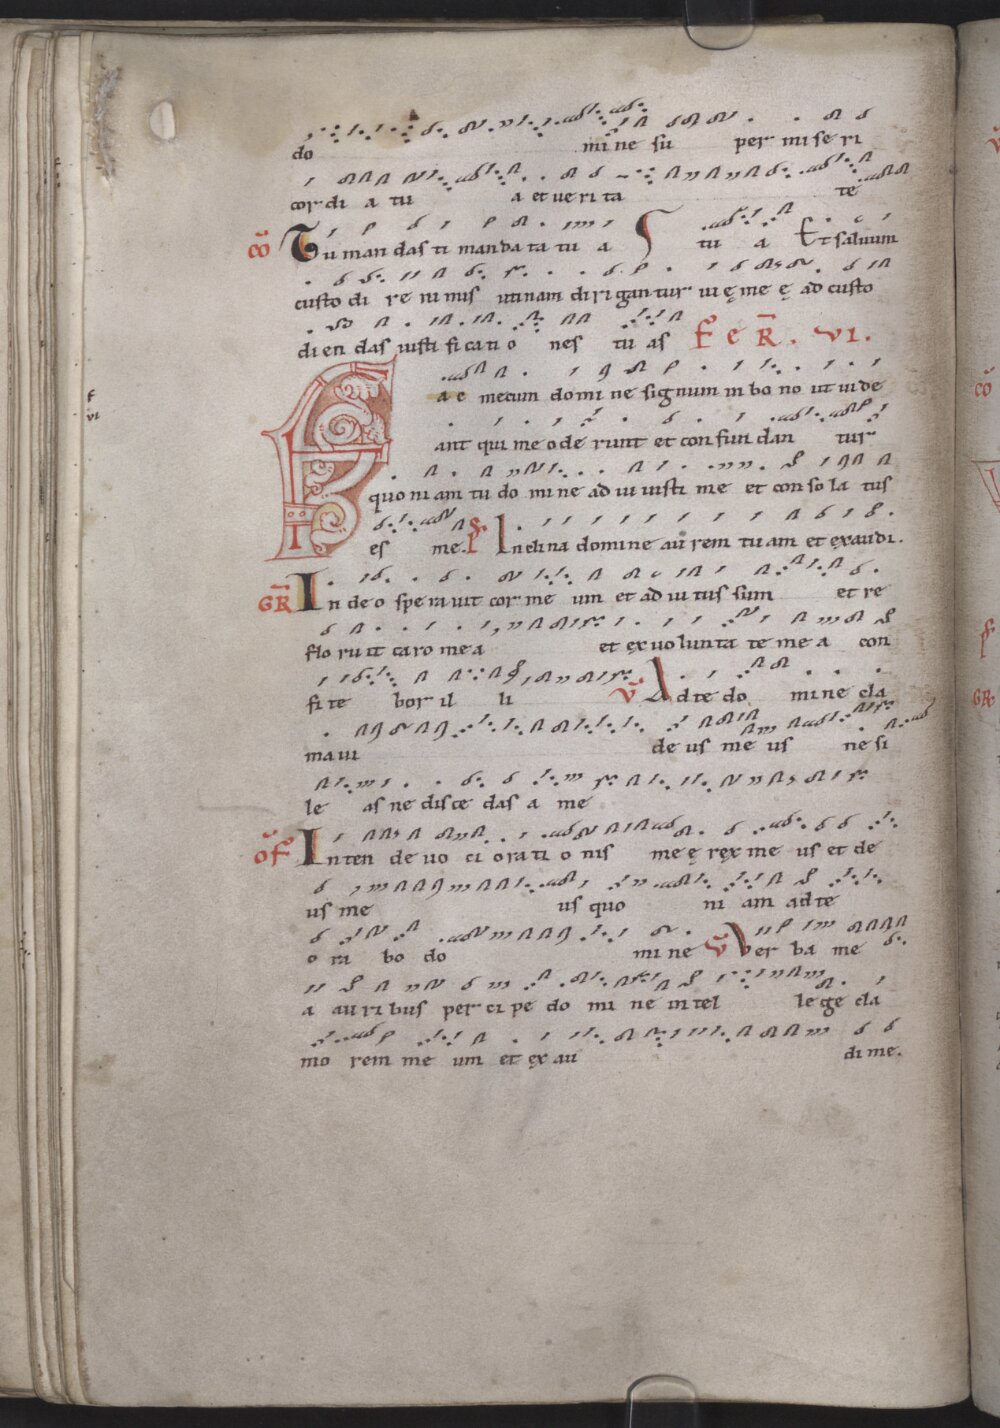 do mine su per mi se ri
cor di a tu a et ue ri ta te
cō Tu man das ti man da ta tu a S tu a Et saluum
custo di re ni mis utinam di ri gan tur ui ę me ę ad custo
di en das iusti fi ca ti o nes tu as FeR. VI.
F a c mecum domi ne signum in bo no ut ui de
ant qui me ode runt et con fun dan tur
quo ni am tu do mi ne ad iu uisti me et con so la tus
es me. Ps Inclina domine aurem tuam et exaudi.
GR In de o spe ra uit cor me um et ad iu tus sum et re
flo ru it ca ro me a et ex uo lun ta te me a con
fi te bor il li V Ad te do mine cla
ma ui de us me us ne si
le as ne disce das a me
OF Inten de uo ci o ra ti o nis me ę rex me us et de
us me us quo ni am ad te
o ra bo do mi ne V Ver ba me
a au ri bus per ci pe do mi ne in tel le ge cla
mo rem me um et ex au di me.
f
vi